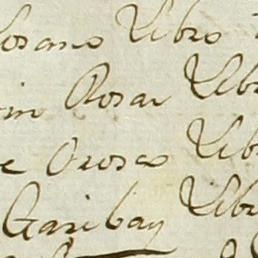 Losano Libro
Rosar Libr
e Orosco Libr
Garibay Libr